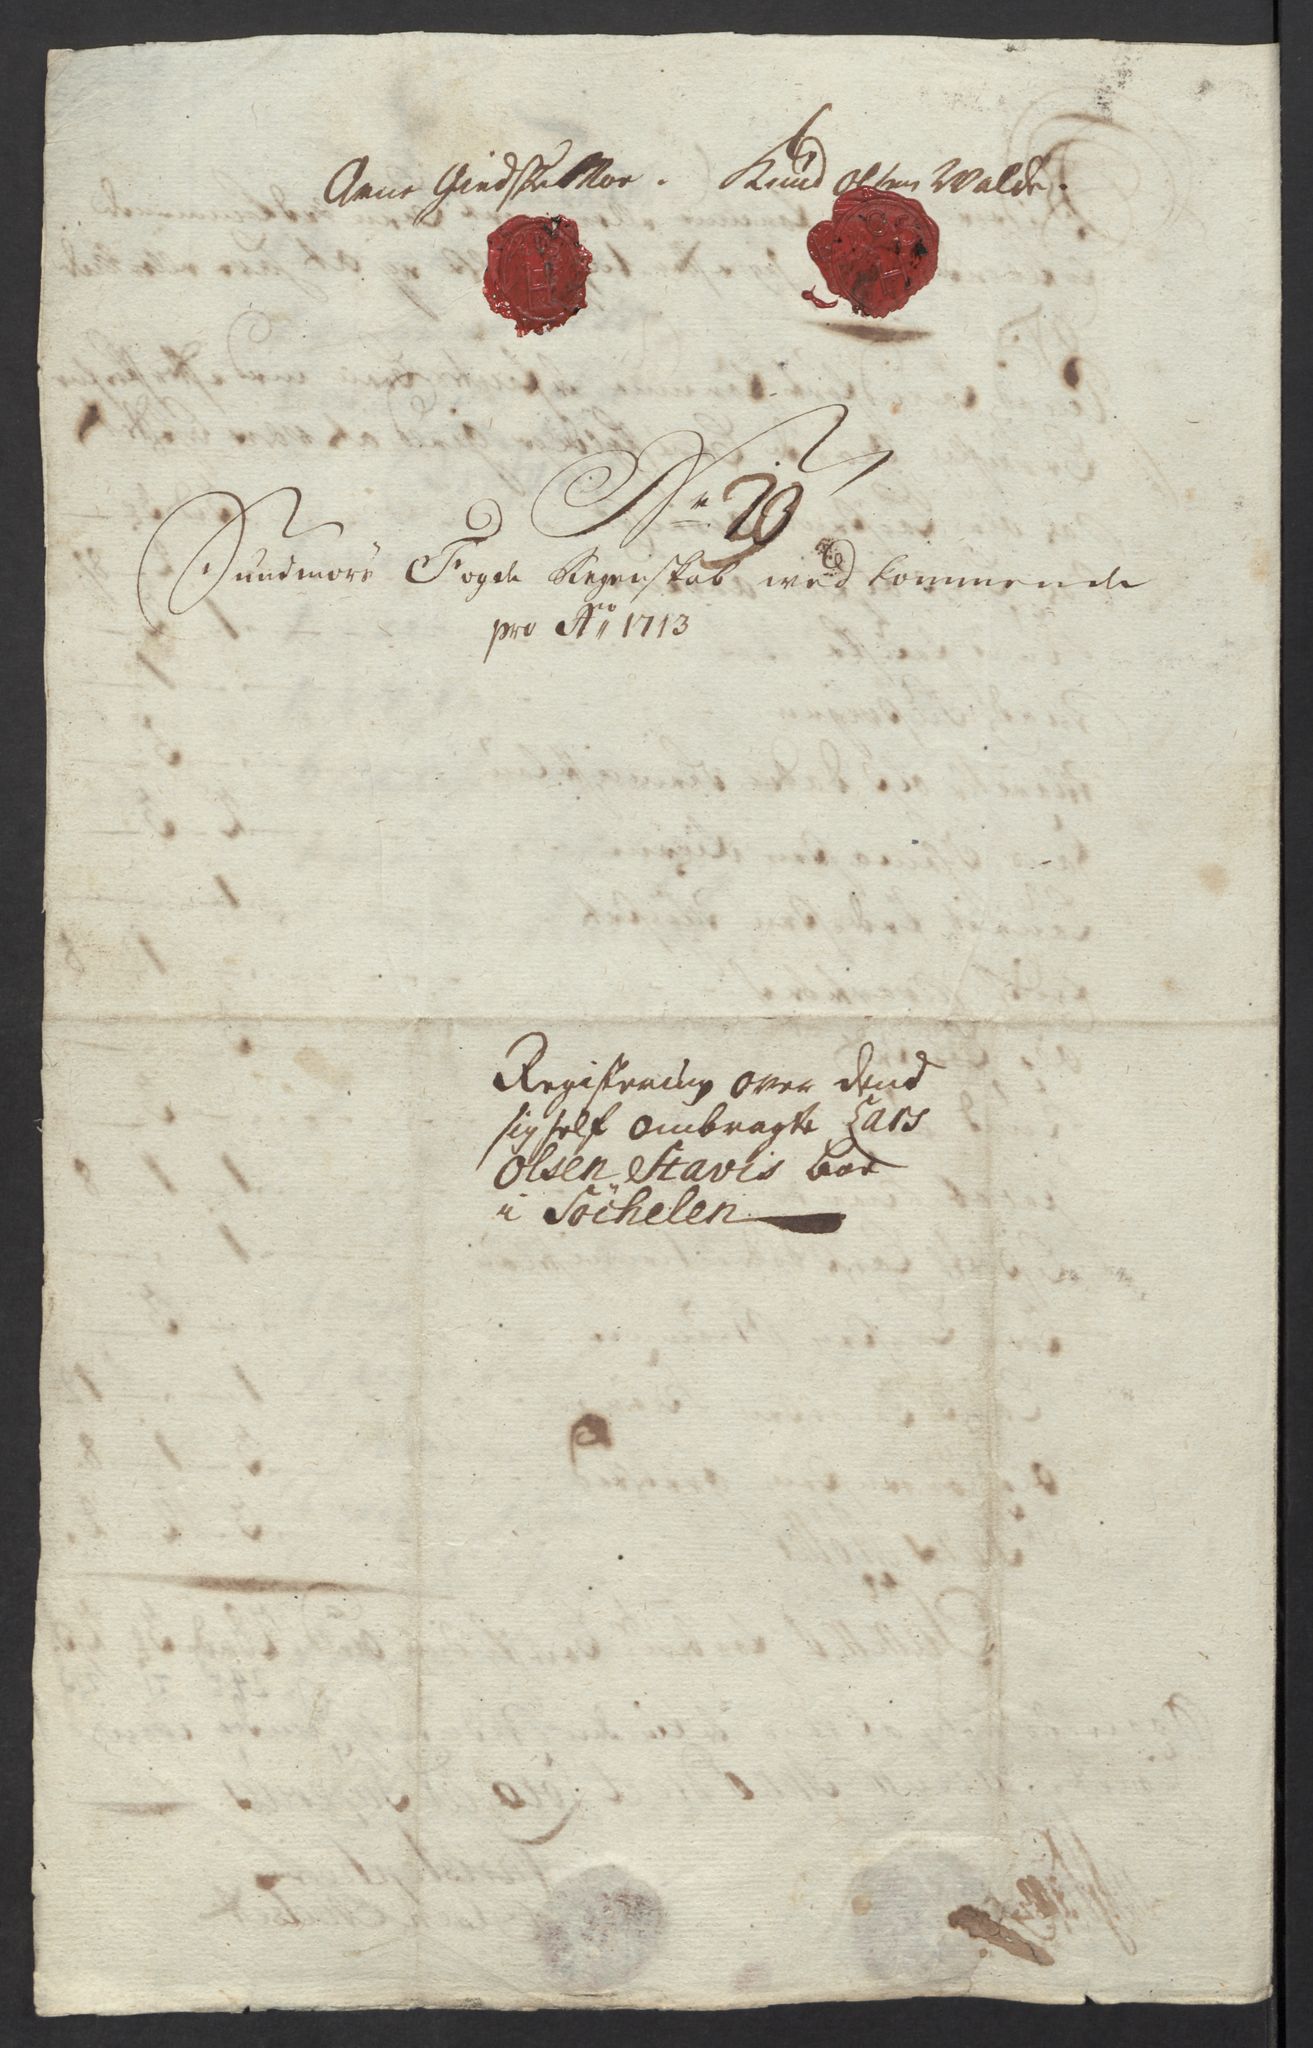 Arne Giedske Moe. Knud Olsen Walde.
No. 20
Sundmörs Fogde Regenskab wedkommende
pro Ao 1713
Registering over dend
sig self ombragte Lars
Olsen Stavis boe
i Söchelen